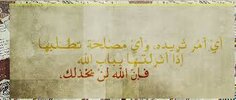 أي أمر تريده، وأي مصلحة تطلبها
إذا أنزلتها بباب الله
فإن الله لن يخذلك.